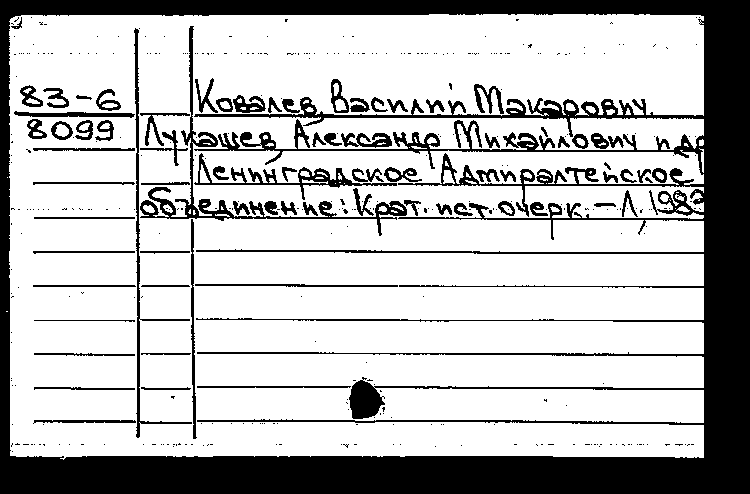 83-6 Ковалев, Василий Макарович.
8099 Лукашев, Александр Михайлович и др
Ленинградское Адмиралтейское
объединение: Крат. ист. очерк. - Л, 1983